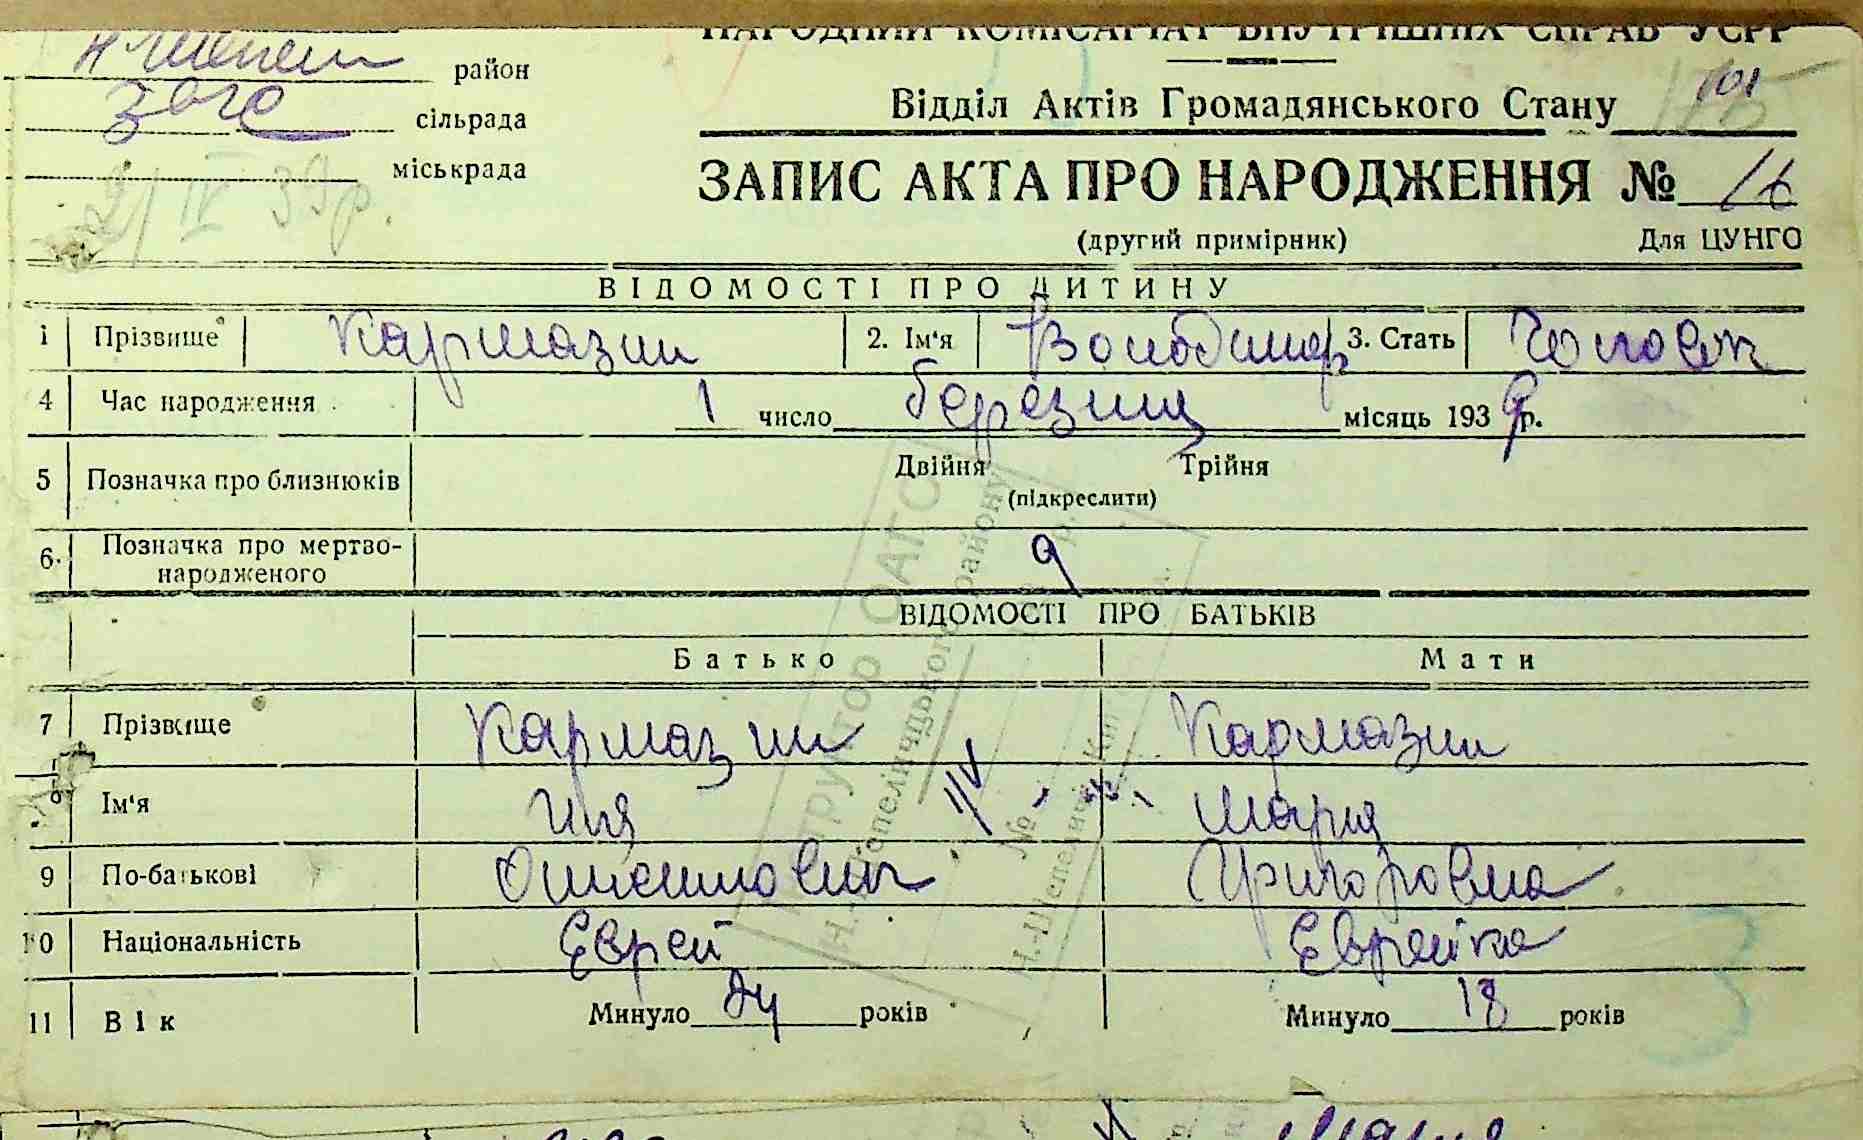 НАРОДНИЙ КОМІСАРІАТ ВНУТРІШНІХ СПРАВ УСРР
район
сільрада
міськрада
2/IV 39р.
Відділ Актів Громадянського Стану
101
ЗАПИС АКТА ПРО НАРОДЖЕННЯ № 16
(другий примірник) Для ЦУНГО
ВІДОМОСТІ ПРО ДИТИНУ
1 Прізвище Кармазин 2. Ім'я Володимир 3. Стать Чоловіч
4 Час народження 1 число березня місяць 1939р.
5 Позначка про близнюків Двійня Трійня
(підкреслити)
6. Позначка про мертво-
народженого
ВІДОМОСТІ ПРО БАТЬКІВ
Батько Мати
7 Прізвище Кармазин Кармазин
Ім'я Ілля Марія
9 По-батькові Григоровна
10 Національність Еврей Еврейка
11 Вік Минуло 24 років Минуло 18 років